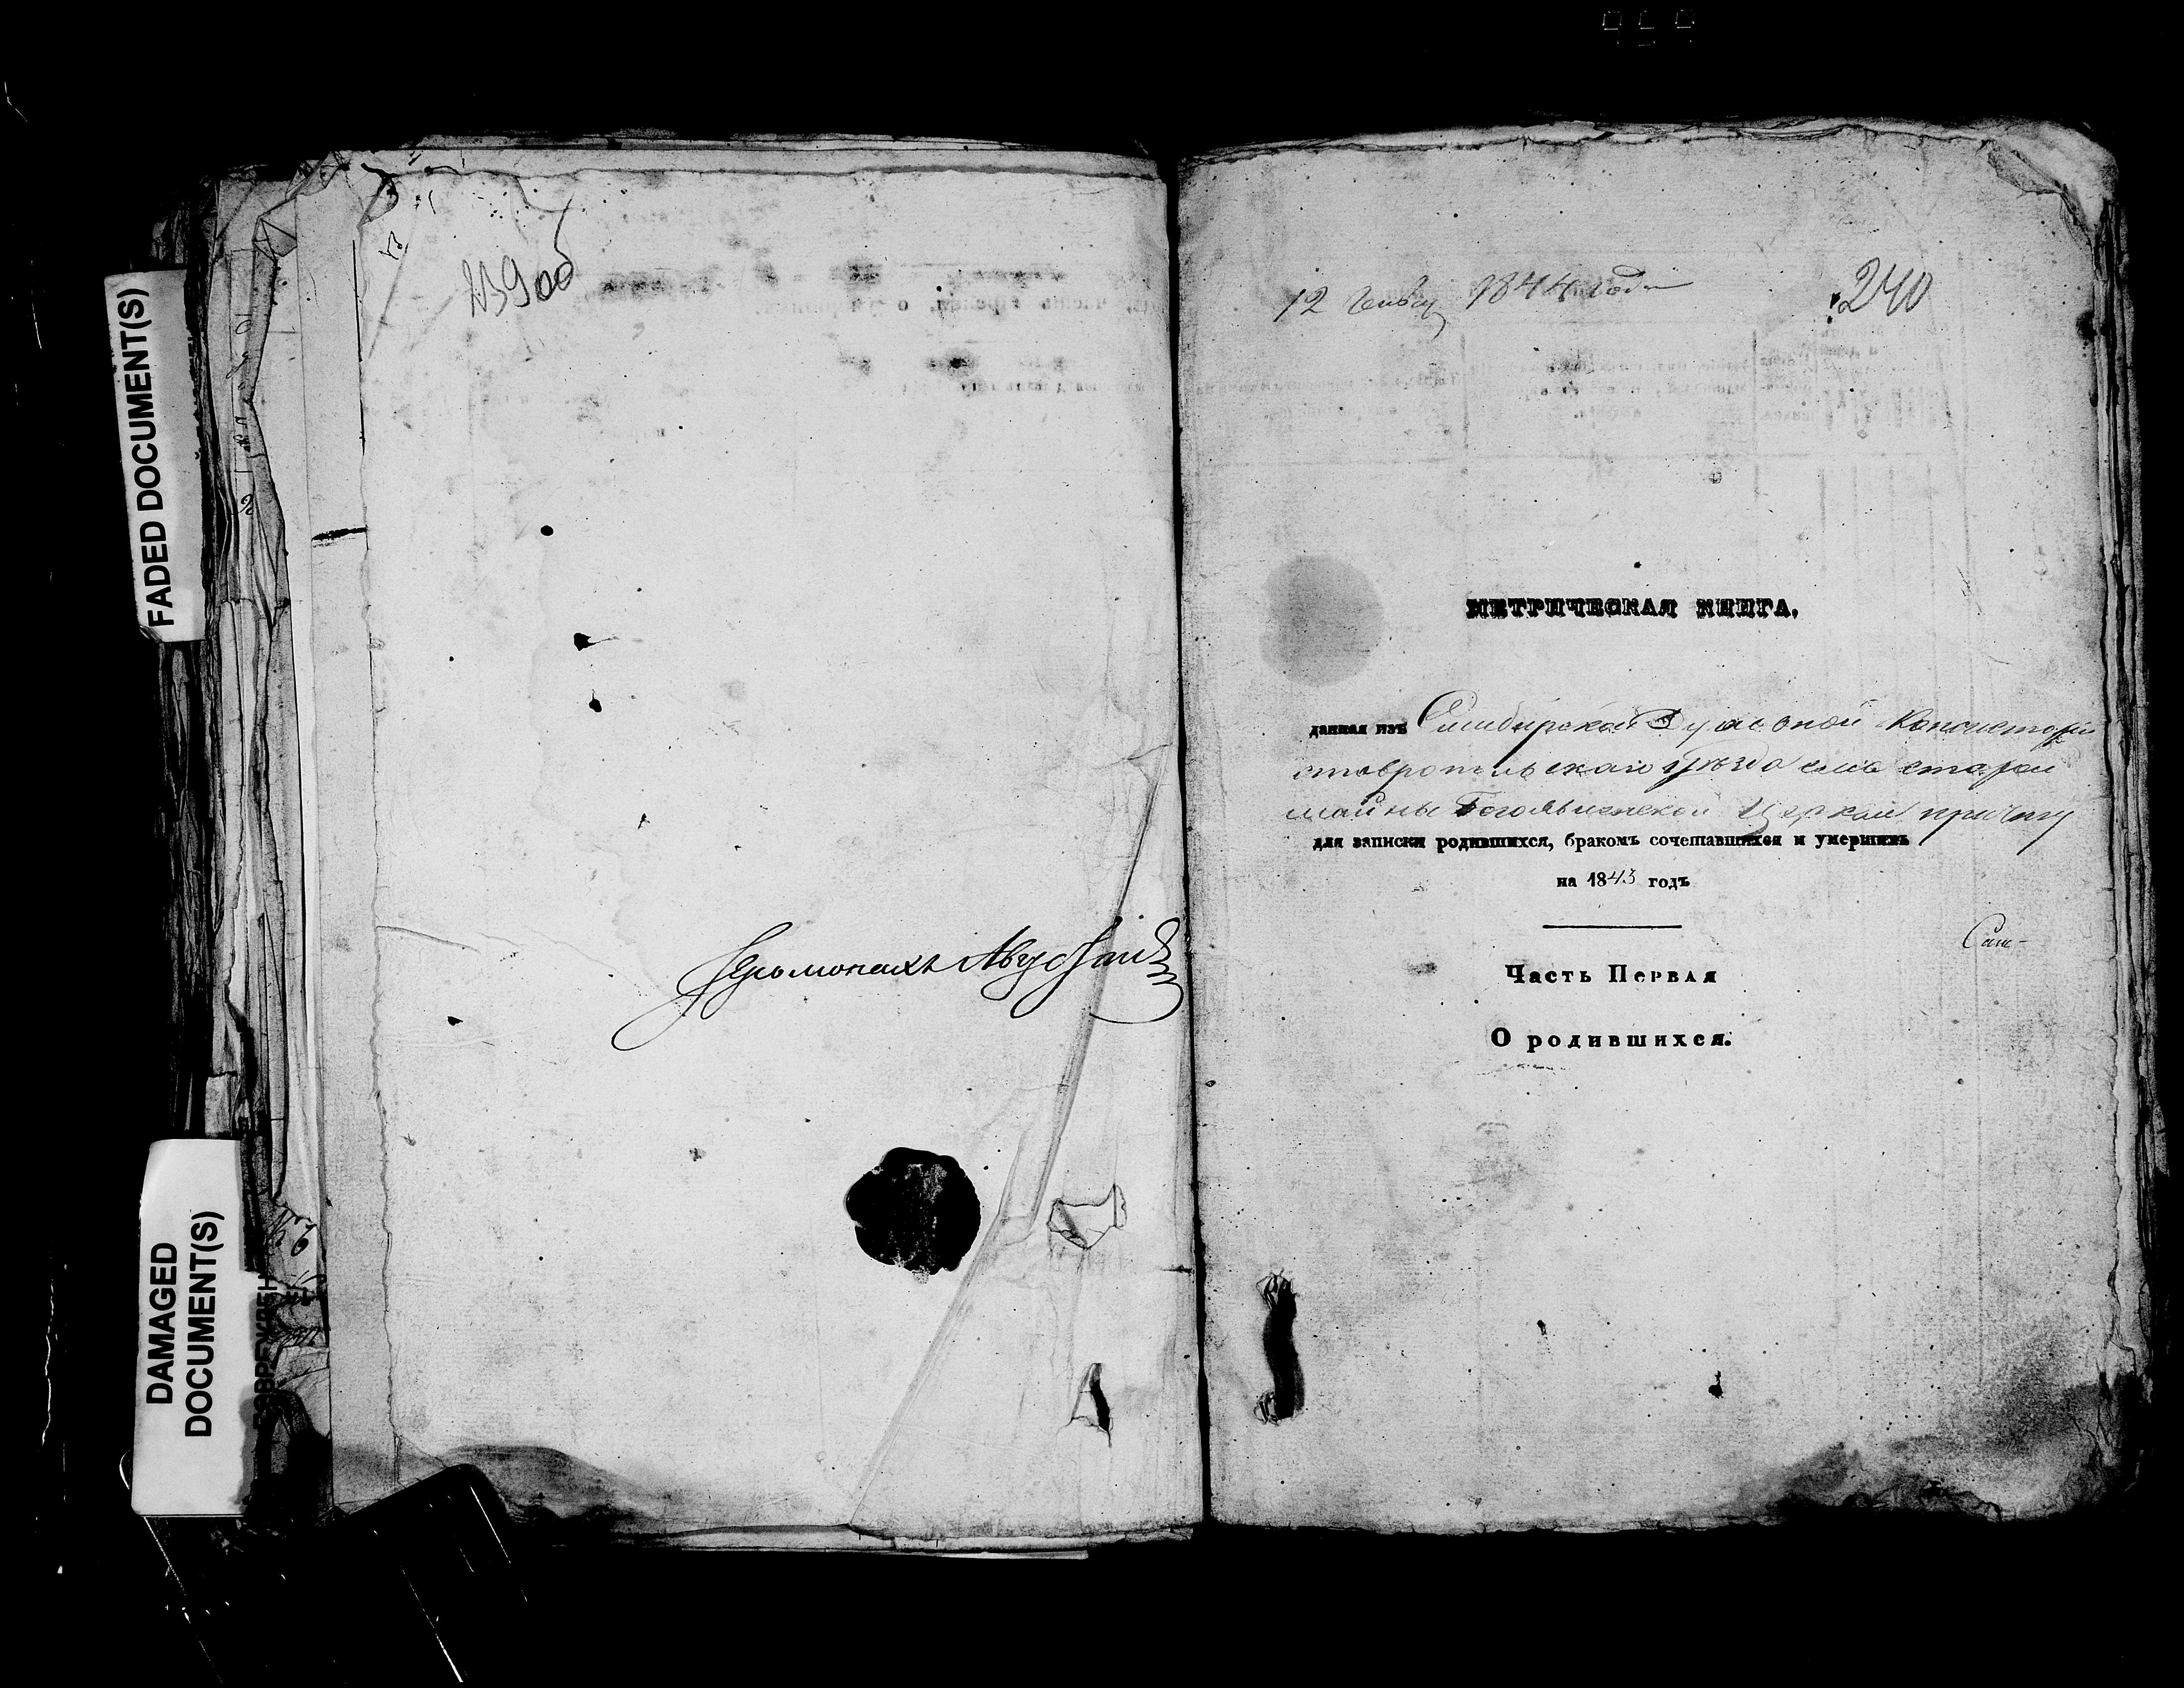 FADED DOCUMENT(S)
DAMAGED
DOCUMENT(S)
239 об
Иеромонахъ
12 Генвар 1844 года
240
МЕТРИЧЕСКАЯ КНИГА,
данная изъ Симбирской Духовной Консистории
ставропольскаго уѣзда села старой
майны Богоявленской Церкви причту
для записки родившихся, бракомъ сочетавшихся и умершихъ
на 1843 годъ
Часть Первая
О родившихся.